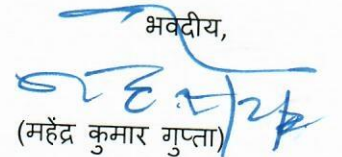 भवदीय,
(महेंद्र कुमार गुप्ता)